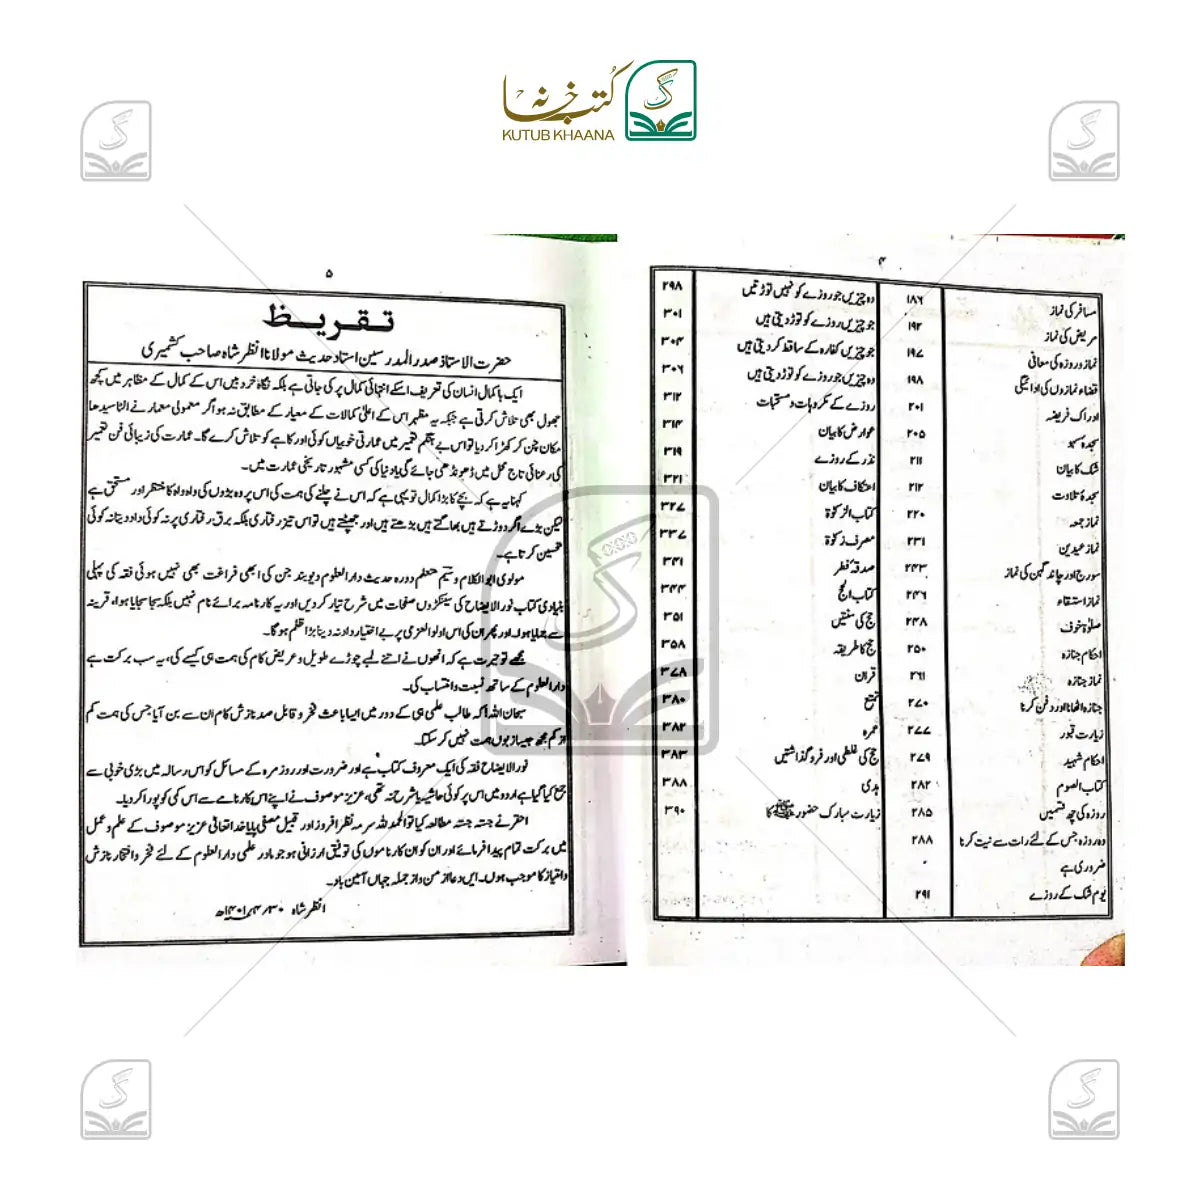 کتب خانہ
KUTUB KHAANA
۴
مسافر کی نماز ۱۸۶
مریض کی نماز ۱۹۲
نماز و روزہ کی معافی ۱۹۷
قضاء نمازوں کی ادائیگی ۱۹۸
ادراک فریضہ ۲۰۱
سجدہ سہو ۲۰۵
شک کا بیان ۲۱۱
سجدۂ تلاوت ۲۱۲
نماز جمعہ ۲۲۰
نماز عیدین ۲۳۱
سورج اور چاند گہن کی نماز ۲۴۳
نماز استسقاء ۲۴۶
صلوٰۃ خوف ۲۴۸
احکام جنازہ ۲۵۰
نماز جنازہ ۲۶۱
جنازہ اٹھانا اور دفن کرنا ۲۷۰
زیارت قبور ۲۷۷
احکام شہید ۲۷۹
کتاب الصوم ۲۸۲
روزہ کی چھ قسمیں ۲۸۵
وہ روزہ جس کے لئے رات سے نیت کرنا ۲۸۸
ضروری ہے
یوم شک کے روزے ۲۹۱
وہ چیزیں جو روزے کو نہیں توڑتیں ۲۹۸
جو چیزیں روزے کو توڑ دیتی ہیں ۳۰۱
جو چیزیں کفارہ کے ساقط کر دیتی ہیں ۳۰۴
وہ چیزیں جو روزے کو توڑ دیتی ہیں ۳۰۶
روزے کے مکروہات و مستحبات ۳۱۲
عوارض کا بیان ۳۱۴
نذر کے روزے ۳۱۹
اعتکاف کا بیان ۳۲۱
کتاب الزکوٰۃ ۳۲۷
مصرف زکوٰۃ ۳۳۷
صدقۂ فطر ۳۴۱
کتاب الحج ۳۴۴
حج کی سنتیں ۳۵۱
حج کا طریقہ ۳۵۸
قران ۳۷۸
تمتع ۳۸۰
عمرہ ۳۸۲
حج کی غلطی اور فروگذاشتیں ۳۸۳
ہدی ۳۸۸
زیارت مبارک حضور ﷺ کا ۳۹۰
۵
تقریظ
حضرت الاستاذ صدر المدرسین استاد حدیث مولانا انظر شاہ صاحب کشمیری
ایک باکمال انسان کی تعریف اسکے انتہائی کمال پر کی جاتی ہے بلکہ نگاہ خرد بیں اس کے کمال کے مظاہر میں کچھ
جھول بھی تلاش کرتی ہے جبکہ یہ مظہر اس کے اعلیٰ کمالات کے معیار کے مطابق نہ ہو اگر معمولی معمار نے الٹا سیدھا
مکان چن کر کھڑا کر دیا تو اس بے ہنگم تعمیر میں عمارتی خوبیاں کوئی اور کاہے کو تلاش کرے گا۔ عمارت کی زیبائی فن تعمیر
کی رعنائی تاج محل میں ڈھونڈھی جائے گی یا دنیا کی کسی مشہور تاریخی عمارت میں۔
کہنا یہ ہے کہ بچے کا بڑا کمال تو یہی ہے کہ اس نے چلنے کی ہمت کی اس پر وہ بڑوں کی واہ واہ کا منتظر اور مستحق ہے
لیکن بڑے اگر دوڑتے ہیں بھاگتے ہیں بڑھتے ہیں اور جھپٹتے ہیں تو اس تیز رفتاری بلکہ برق رفتاری پر نہ کوئی داد دیتا نہ کوئی
تحسین کرتا ہے۔
مولوی ابو الکلام وسیم متعلم دورہ حدیث دار العلوم دیوبند جن کی ابھی فراغت بھی نہیں ہوئی فقہ کی پہلی
بنیادی کتاب نور الایضاح کی سینکڑوں صفحات میں شرح تیار کر دیں اور یہ کارنامہ برائے نام نہیں بلکہ سجا سجایا ہوا، قرینہ
سے جمایا ہوا۔ اور پھر ان کی اس اولوالعزمی پر بے اختیار داد نہ دینا بڑا ظلم ہوگا۔
مجھے تو حیرت ہے کہ انھوں نے اتنے لمبے چوڑے طویل و عریض کام کی ہمت ہی کیسے کی، یہ سب برکت ہے
دار العلوم کے ساتھ نسبت و انتساب کی۔
سبحان اللہ! کہ طالب علمی ہی کے دور میں ایسا باعث فخر و قابل صد نازش کام ان سے بن آیا جس کی ہمت کم
از کم مجھ جیسا زبوں ہمت نہیں کر سکتا۔
نور الایضاح فقہ کی ایک معروف کتاب ہے اور ضرورت اور روز مرہ کے مسائل کو اس رسالہ میں بڑی خوبی سے
جمع کیا گیا ہے اردو میں اس پر کوئی حاشیہ یا شرح نہ تھی، عزیز موصوف نے اپنے اس کارنامے سے اس کمی کو پورا کر دیا۔
احقر نے جستہ جستہ مطالعہ کیا تو الحمد للہ سرمہ نظر افروز اور قبیل مصفی پایا خدا تعالیٰ عزیز موصوف کے علم و عمل
میں برکت تمام پیدا فرمائے اور ان کو ان کارناموں کی توفیق ارزانی ہو جو مادر علمی دار العلوم کے لئے فخر و افتخار نازش
و امتیاز کا موجب ہوں۔ ایں دعا از من و از جملہ جہاں آمین باد۔
انظر شاہ ۳۰؍۴؍۱۴۰۱ھ